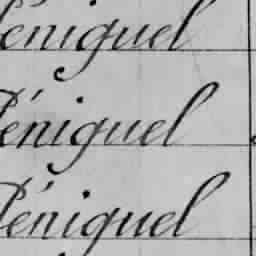 Péniguel
Péniguel
Péniguel